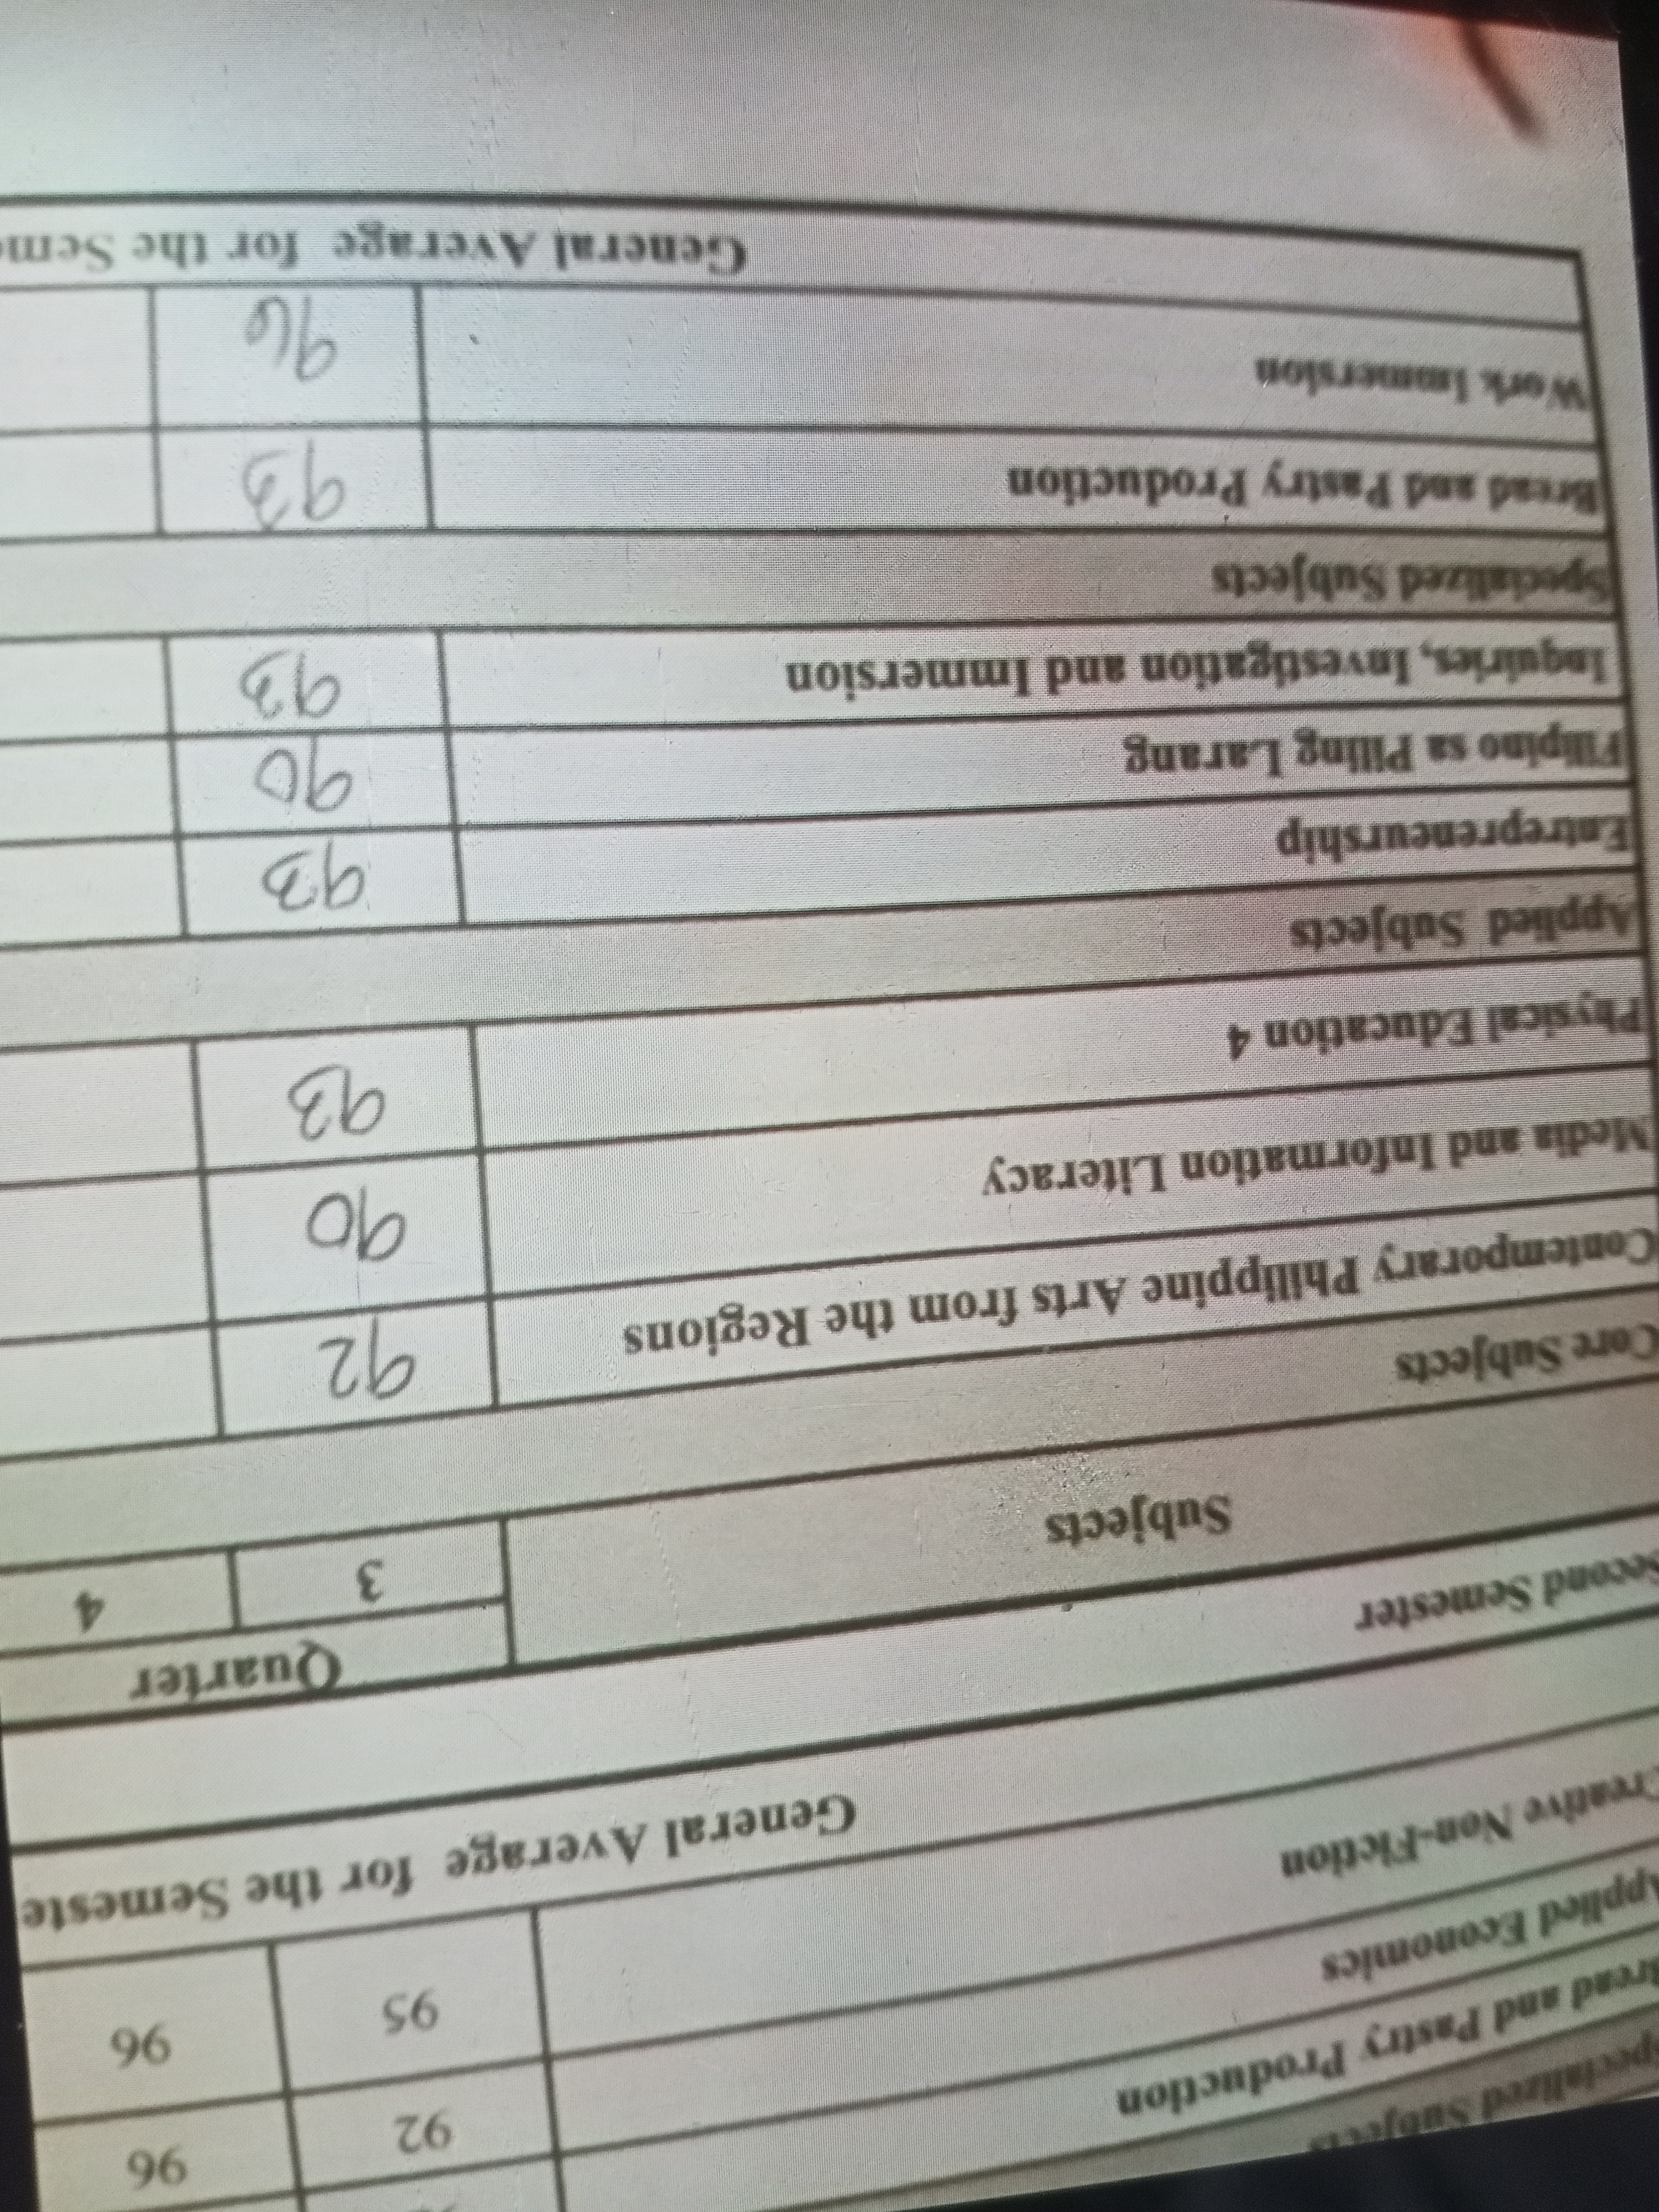 Specialized Subjects
Bread and Pastry Production
Applied Economics 92 96
Creative Non-Fiction 95 96
General Average for the Semeste
Second Semester
Subjects Quarter
3 4
Core Subjects
Contemporary Philippine Arts from the Regions 92
Media and Information Literacy 90
Physical Education 4 93
Applied Subjects
Entrepreneurship 93
Filipino sa Piling Larang 90
Inquiries, Investigation and Immersion 93
Specialized Subjects
Bread and Pastry Production 93
Work Immersion 96
General Average for the Sem